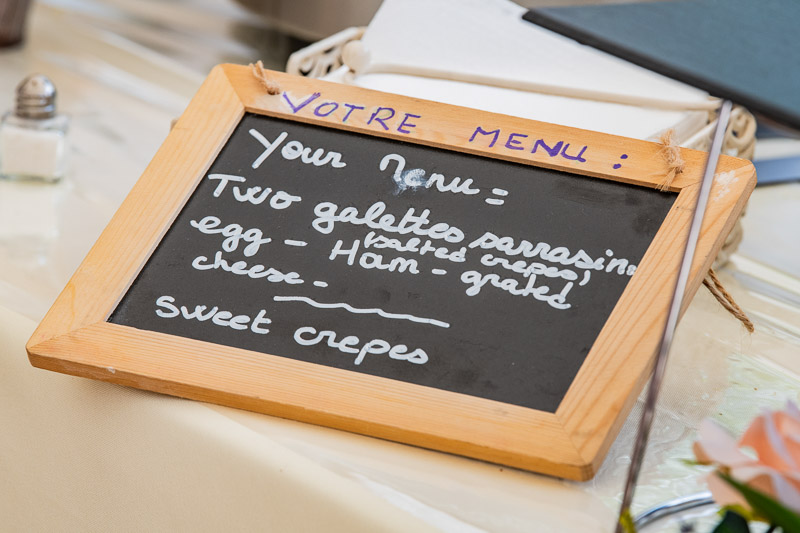 VOTRE MENU :
Your Menu =
Two galettes sarrasin
(salted crepes)
egg - Ham - grated
cheese -
sweet crepes